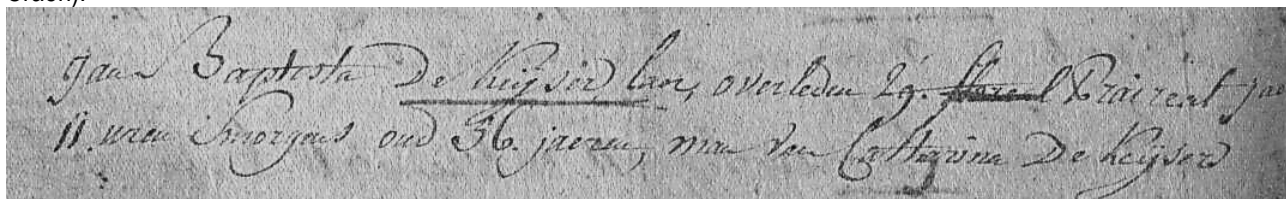 Jan Baptista De Keijser, overleden 29. Prairial
11. uren Smorgens oud 36. jaeren, man van Catharina De Keijser